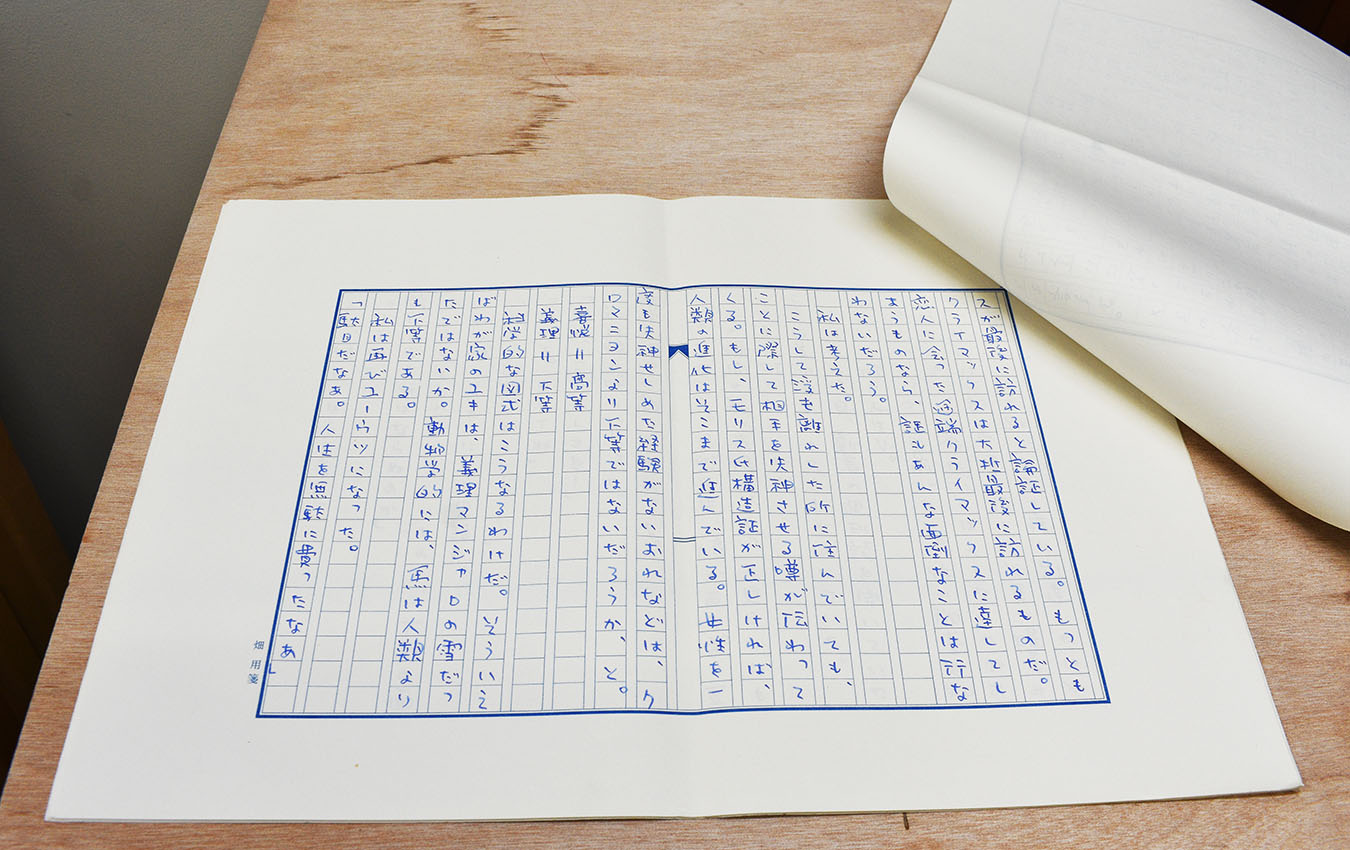 スが最後に訪れると論証している。もっとも
クライマックスは大抵最後に訪れるものだ。
恋人に会った途端クライマックスに達してし
まうものなら、誰もあんな面倒なことは行な
わないだろう。
私は考えた。
こうして設も離れした所に住んでいても、
ことに際して相手を失神させる噂が伝わって
くる。もし、モリス氏構造証が正しければ、
人類の進化はそこまで進んでいる。女性を一
度も失神せしめた経験がないおれなどは、ク
ロマニヨンより下等ではないだろうか、と。
喜悦=高等
義理=下等
科学的な図式はこうなるわけだ。そういえ
ばわが家のユキは、義理マンジャロの雪だっ
たではないか。動物学的には、馬は人類より
も下等である。
私は再びユーウツになった。
「駄目だなぁ。人生を無駄に費ったなぁ」
畑用箋